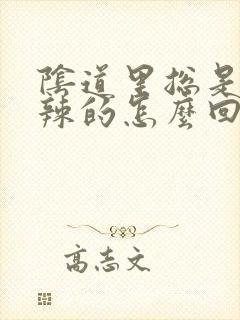 陰道里總是
辣的怎麼回
高志文